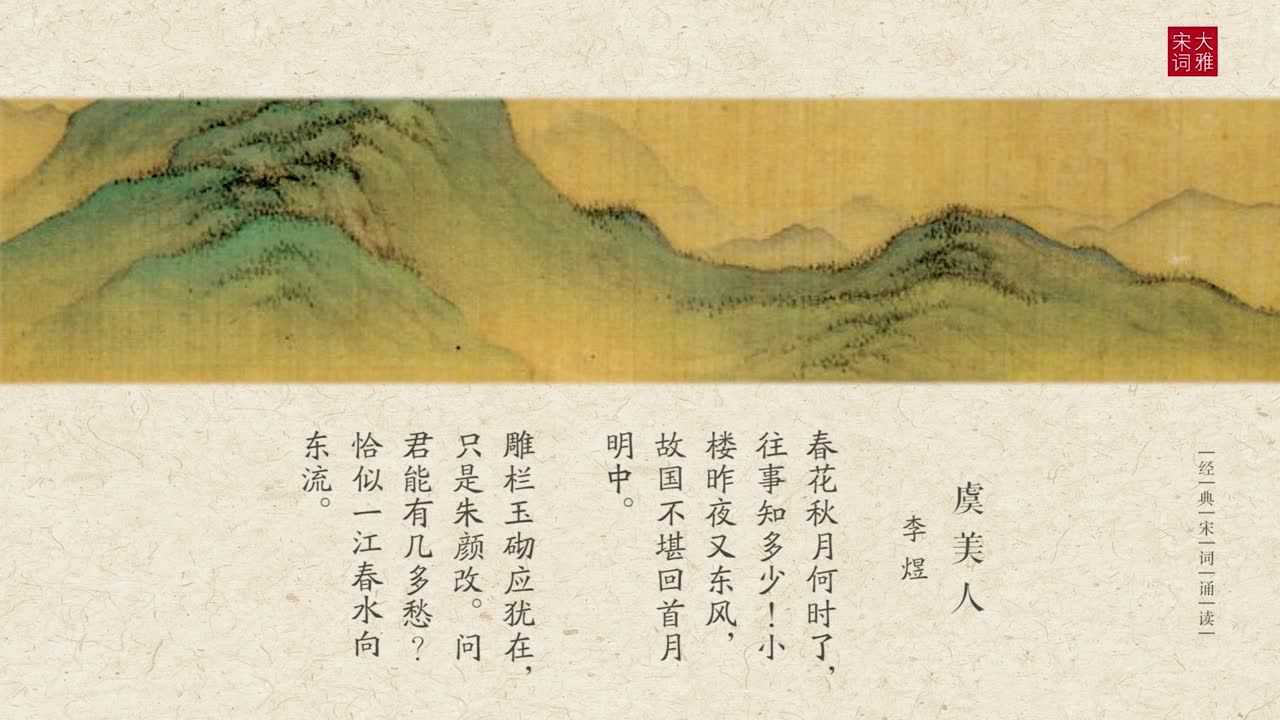 大雅
宋词
经典宋词诵读
虞美人
李煜
春花秋月何时了，
往事知多少！小
楼昨夜又东风，
故国不堪回首月
明中。
雕栏玉砌应犹在，
只是朱颜改。问
君能有几多愁？
恰似一江春水向
东流。